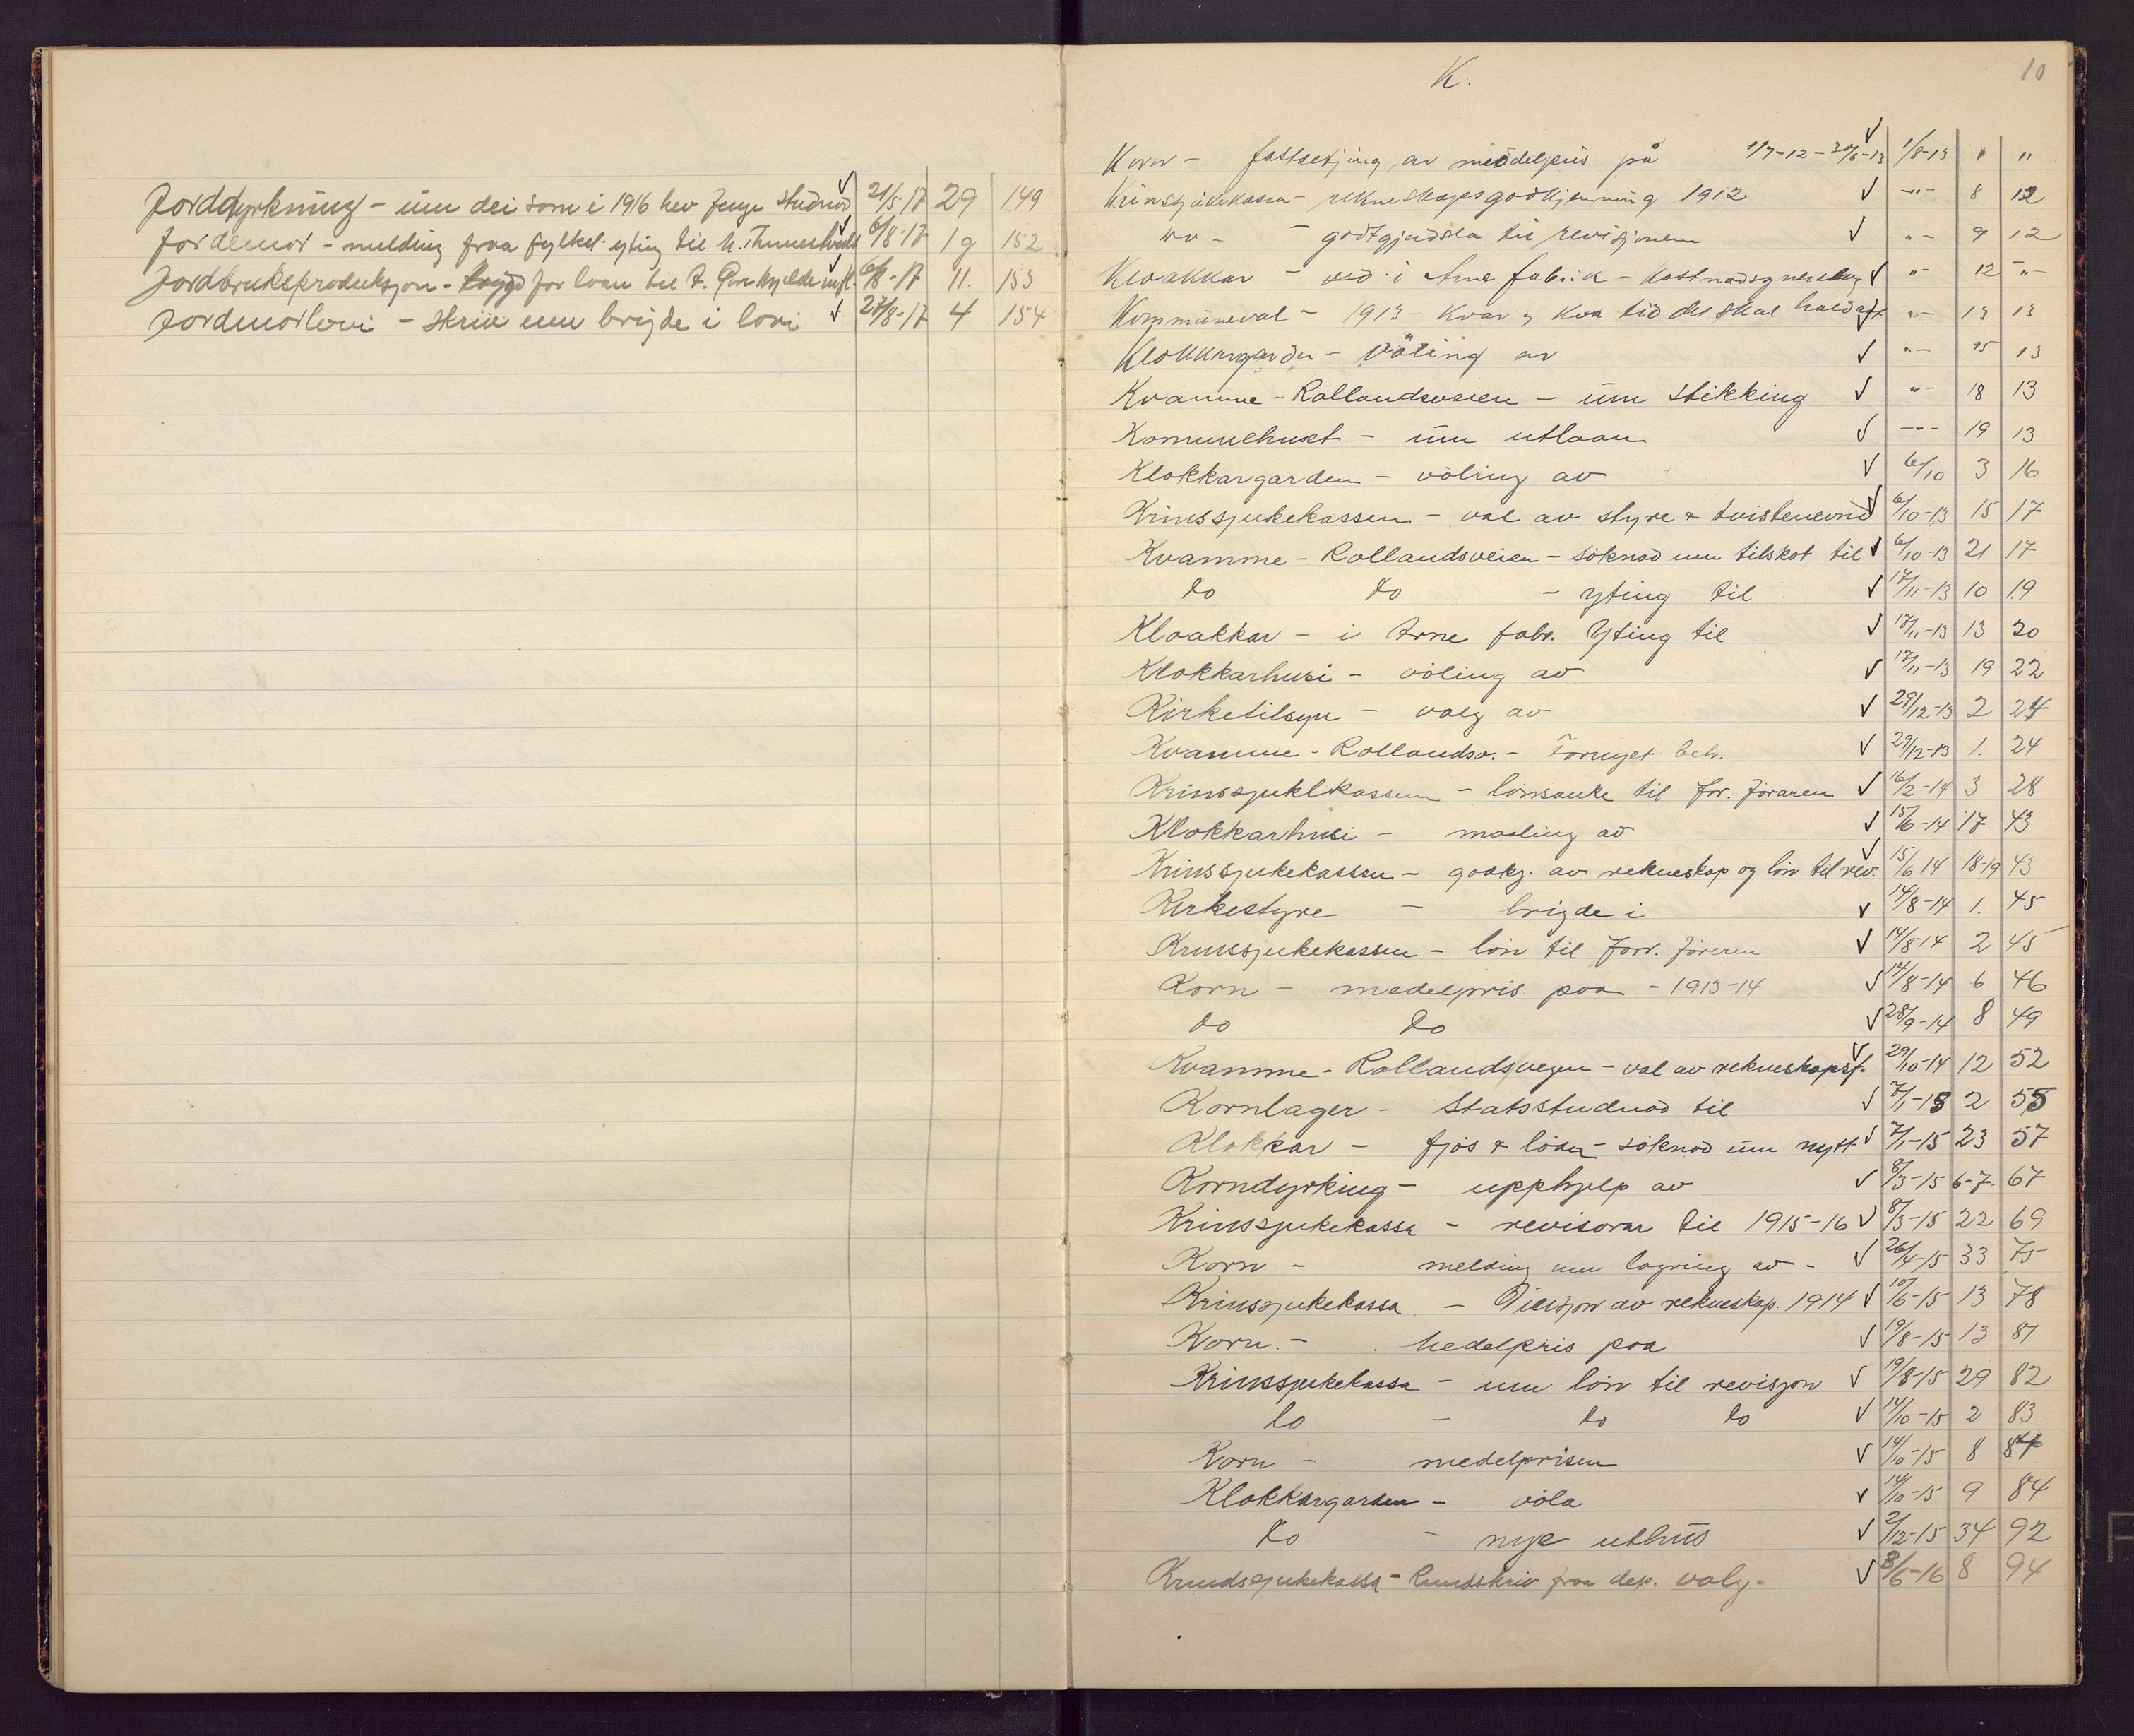 Jorddyrkning - um dei som i 1916 hev fenge studnad ✓ 21/5-17 29 149
Jordemor - melding fraa fylket. yting til ✓ 6/8-17 19 152
Jordbruksproduksjon - for loan til ✓ 6/8-17 11. 153
Jordmorlovi - skriv um brigde i lovi ✓ 27/8-17 4 154
K.
10
Korn - fastsetjing av middelpris på 1/7-12 - 30/6-13 ✓ 1/8-13 " "
Krinssjukekassen - rekneskapsgodkjenning 1912 ✓ -"- 8 12
do - - godtgjersla til revisjonen ✓ "- 9 12
Kloakkar - ved i Arne fabrik - kostnadsyverslag ✓ "- 12 -"-
Kommuneval - 1913 - kvar og kva tid det skal haldast ✓ "- 13 13
Klokkargarden - völing av ✓ "- 15 13
Kvamme - Rollandsveien - um stikking ✓ "- 18 13
Komunehuset - um utlaan ✓ -"- 19 13
Klokkargarden - völing av ✓ 6/10 3 16
Krinssjukekassen - val av styre & tvistenevnd ✓ 6/10-13 15 17
Kvamme - Rollandsveien - söknad um tilskot til ✓ 6/10-13 21 17
do do - yting til ✓ 17/11-13 10 19
Kloakkar - i Arne fabr. Yting til ✓ 17/11-13 13 20
Klokkarhusi - völing av ✓ 17/11-13 19 22
Kirketilsyn - valg av ✓ 29/12-13 2 24
Kvamme - Rollandsv. - Fornyet beh. ✓ 29/12-13 1. 24
Krinssjuklkassen - lönsauke til for. föraren ✓ 16/2-14 3 28
Klokkarhusi - maaling av ✓ 15/6-14 17 43
Krinssjukekassen - godkj. av rekneskap og lön til rev. ✓ 15/6 14 18-19 43
Kirkestyre - brigde i ✓ 14/8-14 1. 45
Krinssjukekassen - lön til forr. föreren ✓ 14/8-14 2 45
Korn - medelpris paa - 1913-14 ✓ 14/8-14 6 46
do do ✓ 28/9-14 8 49
Kvamme - Rollandsvegen - val av rekneskapsf. ✓ 29/10-14 12 52
Kornlager - Statsstudnad til ✓ 7/1-15 2 55
Klokkar - fjös & löda - söknad um nytt ✓ 7/1-15 23 57
Korndyrking - upphjelp av ✓ 8/3-15 6-7. 67
Krinssjukekassa - revisorar til 1915-16 ✓ 8/3-15 22 69
Korn - melding um lagring av - ✓ 26/4-15 33 75
Krinssjukekassa - av rekneskap. 1914 ✓ 10/6-15 13 78
Korn. - Medelpris paa ✓ 19/8-15 13 81
Krinssjukekassa - um lön til revisjon ✓ 19/8-15 29 82
do - do do ✓ 14/10-15 2 83
Korn - medelprisen ✓ 14/10-15 8 84
Klokkargarden - völa ✓ 14/10-15 9 84
do - nye uthus ✓ 2/12-15 34 92
Krindssjukekassa - Rundskriv fraa dep. valg - ✓ 8/6-16 8 94